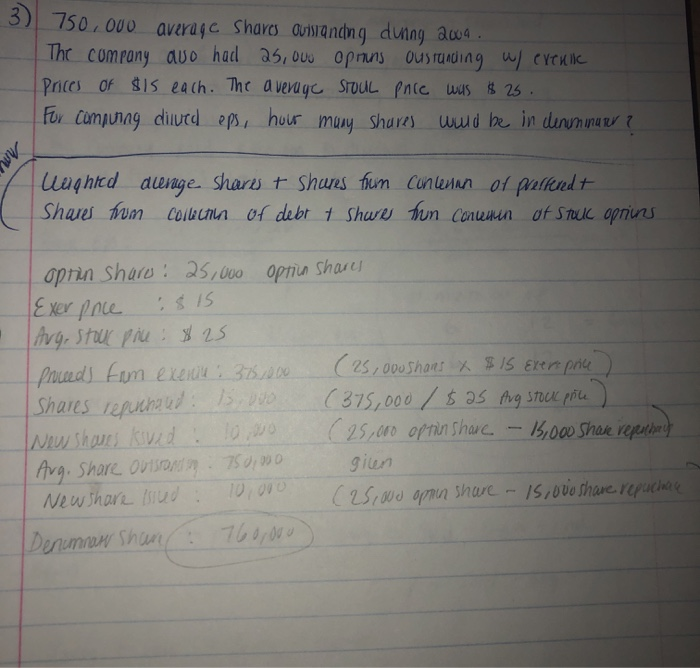 3) 750,000 average shares outstanding during 2004.
The company also had 25,000 options outstanding w/ exercise
prices of $15 each. The average stock price was $25.
For computing diluted eps, how many shares would be in denominator?
Weighted average shares + shares from conversion of preffered +
Shares from collection of debt + shares from conversion of stock options
option shares: 25,000 option shares
Exer price : $15
Avg. stock price : $25
Proceeds from exercise : 375,000 (25,000 shares x $15 exer price)
Shares repurchased : 15,000 (375,000 / $25 Avg stock price)
New shares issued : 10,000 (25,000 option share - 15,000 share repurchase)
Avg. share outstanding : 750,000 given
New share issued : 10,000 (25,000 option share - 15,000 share repurchase
Denominator share : 760,000